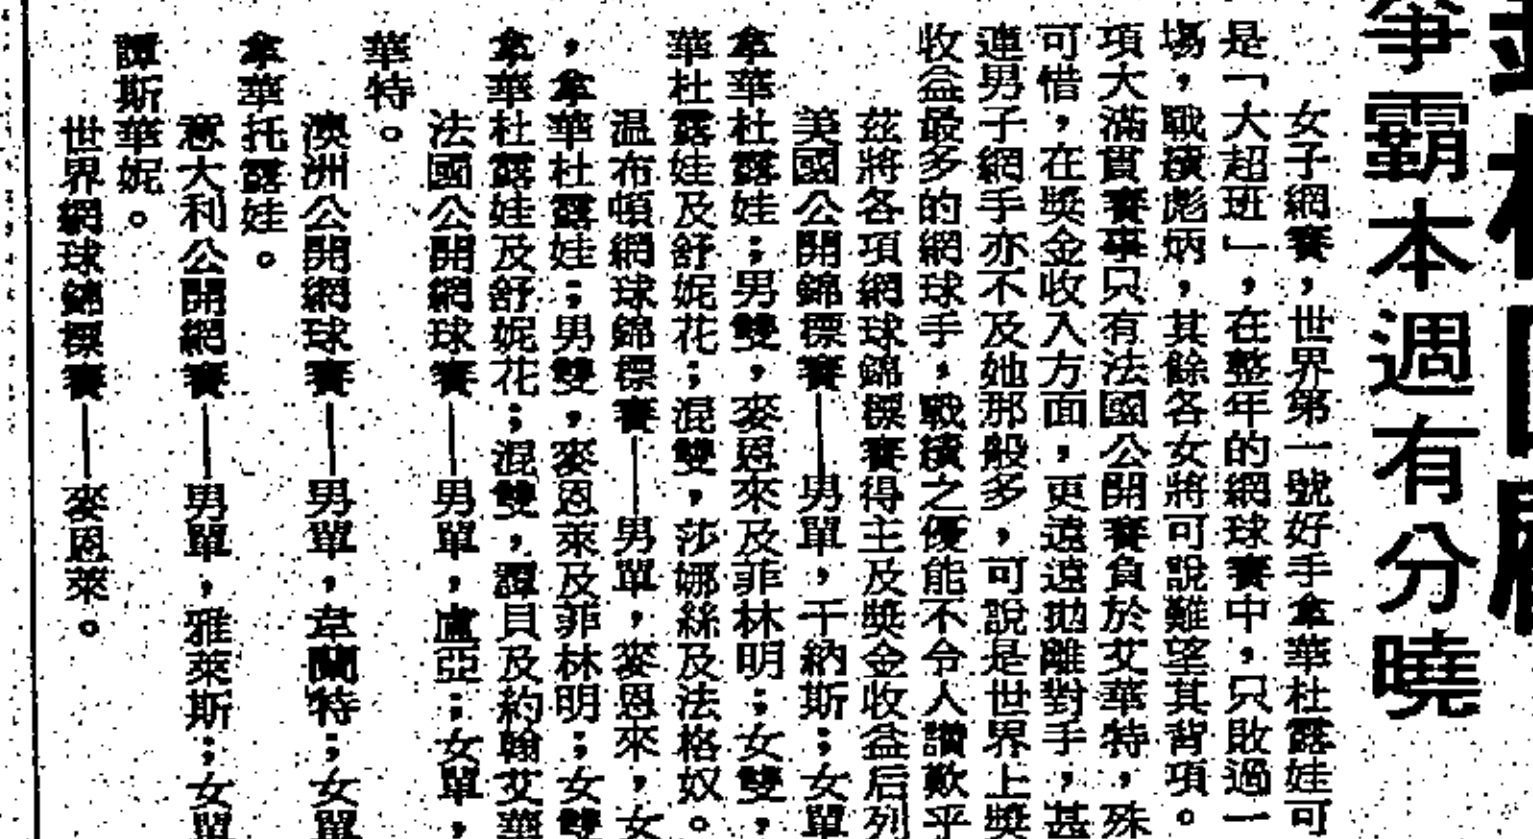 爭霸本週有分曉
女子網賽，世界第一號好手拿華杜露娃可
是「大超班」，在整年的網球賽中，只敗過一
場，戰績彪炳，其餘各女將可說難望其背項。
項大滿貫賽事只有法國公開賽負於艾華特，殊
可惜，在獎金收入方面，更遠遠拋離對手，甚
連男子網手亦不及她那般多，可說是世界上獎
收益最多的網球手，戰績之優能不令人讚歎乎
茲將各項網球錦標賽得主及獎金收益后列
美國公開錦標賽——男單，干納斯；女單
拿華杜露娃；男雙，麥恩來及菲林明；女雙，
華杜露娃及舒妮花；混雙，莎娜絲及法格奴。
温布頓網球錦標賽——男單，麥恩來，女
，拿華杜露娃；男雙，麥恩萊及菲林明；女雙
拿華杜露娃及舒妮花；混雙，譚貝及約翰艾華
法國公開網球賽——男單，盧亞；女單，
華特。
澳洲公開網球賽——男單，韋蘭特；女單
拿華托露娃。
意大利公開網賽——男單，雅萊斯；女單
譚斯華妮。
世界網球錦標賽——麥恩萊。